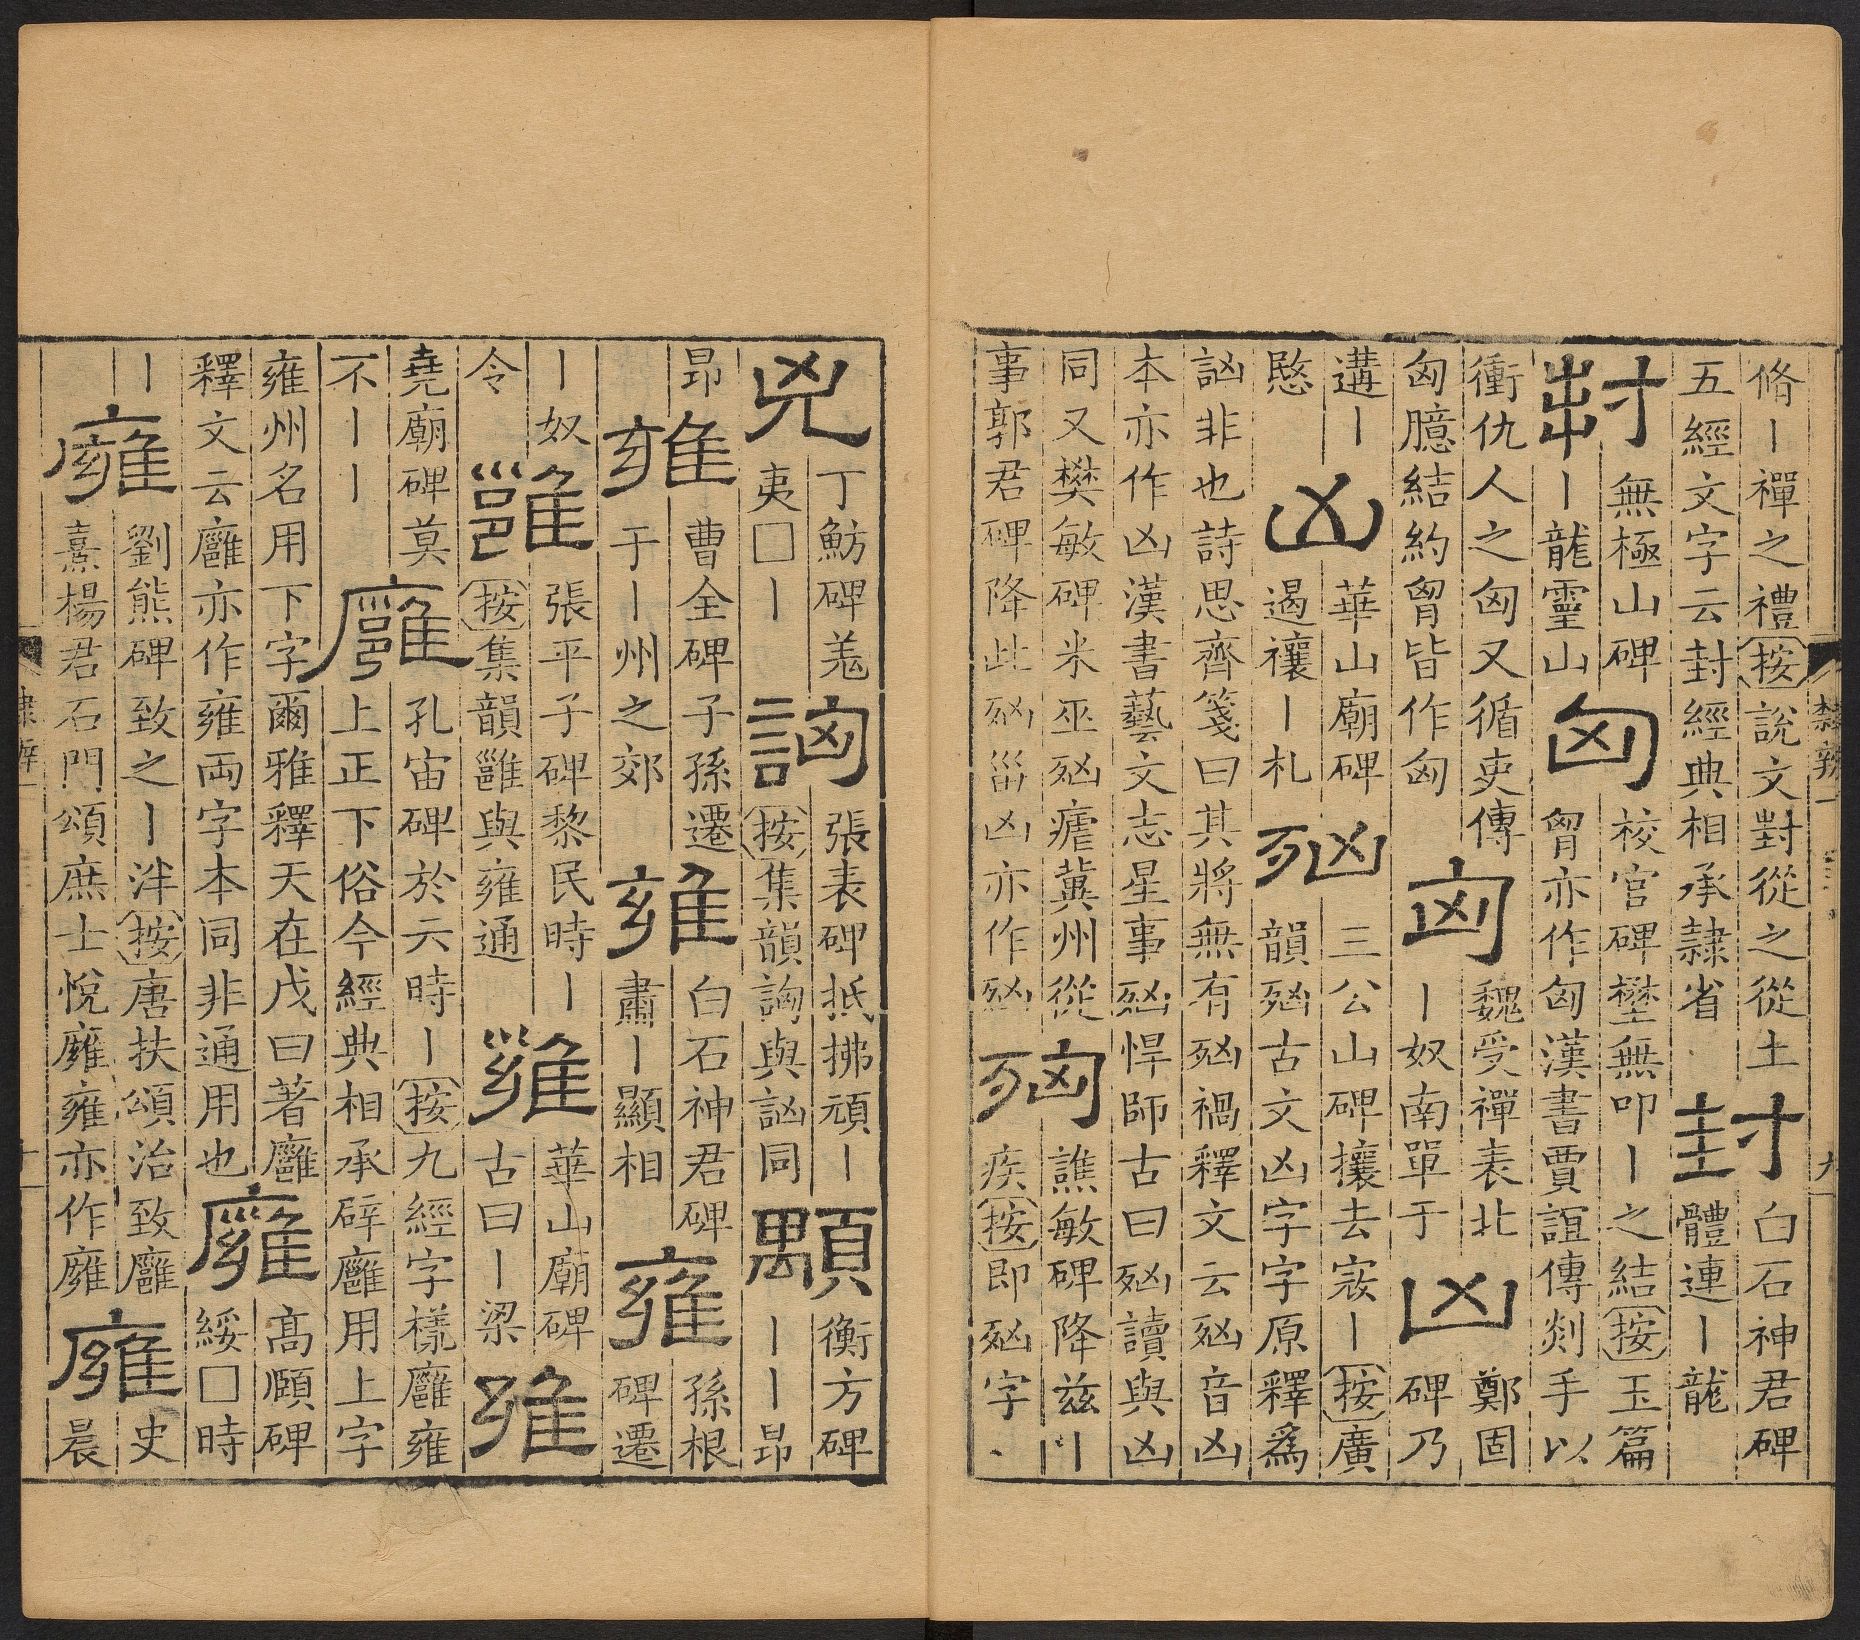 脩丨禪之禮按說文對從之從土
五經文字云封經典相承隸省
封
白石神君碑
體連丨龍
封
無極山碑
丨龍靈山
匈
校官碑㙺無叩丨之結按玉篇
胷亦作匈漢書賈誼傳剡手以
衝仇人之匈又循吏傳
匈臆結約胷皆作匈
匈
魏受禪表北
丨奴南單于
凶
鄭固
碑乃
遘丨
愍
凶
華山廟碑
遏禳丨札
𣧑
三公山碑攘去寇丨按廣
韻𣧑古文凶字字原釋爲
訩非也詩思齊箋曰其將無有𣧑禍釋文云𣧑音凶
本亦作凶漢書藝文志星事𣧑悍師古曰𣧑讀與凶
同又樊敏碑米巫𣧑瘧冀州從
事郭君碑降此𣧑甾凶亦作𣧑
譙敏碑降兹
疾按即𣧑字
隸辨一
九
兇
丁魴碑羗
夷□丨
詾
張表碑抵拂頑丨
按集韻詾與訩同
顒
衡方碑
丨丨昂
昂
雍
曹全碑子孫遷
于丨州之郊
雍
白石神君碑
肅丨顯相
雍
孫根
碑遷
丨奴
令
雝
張平子碑黎民時丨
按集韻雝與雍通
雍
華山廟碑
古曰丨梁
雍
堯廟碑莫
不丨丨
廱
孔宙碑於亓時丨按九經字㨾廱雍
上正下俗今經典相承辟廱用上字
雍州名用下字爾雅釋天在戊曰著廱
釋文云廱亦作雍両字本同非通用也
廱
高頤碑
綏□時
丨
廱
劉熊碑致之丨泮按唐扶頌治致廱
熹楊君石門頌庶士悅廱雍亦作廱
廱
史
晨
隸辨一